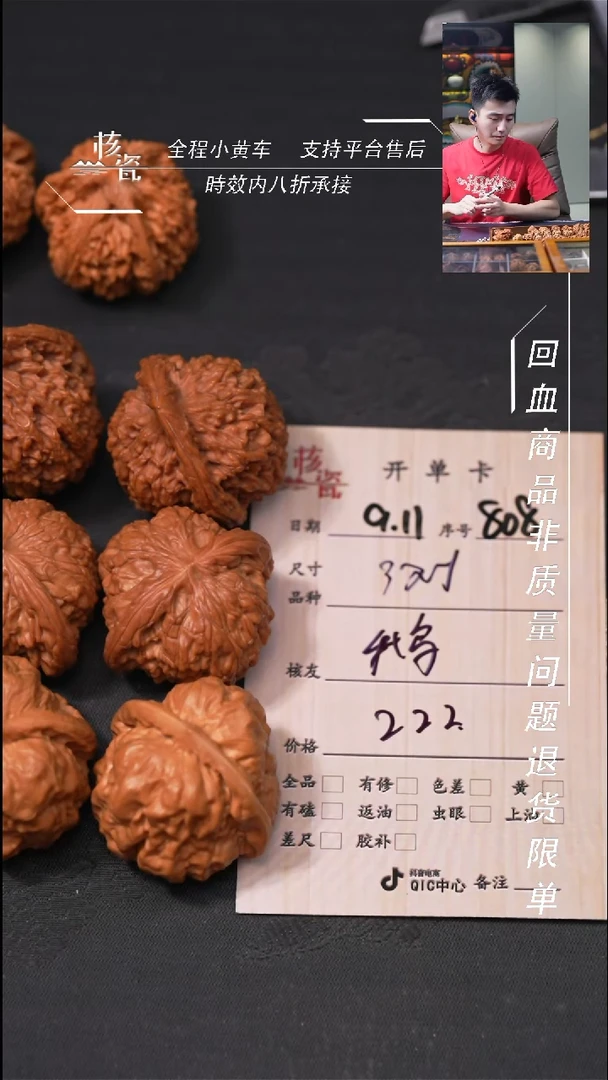 核瓷
全程小黄车 支持平台售后
時效内八折承接
回血商品非质量问题退货限单
核瓷
开单卡
日期 9.11 序号 808
尺寸
品种 3对
核友
价格 222.
全品 有修 色差 黄
有磕 返油 虫眼 上油
差尺 胶补
抖音电商
QIC中心 备注